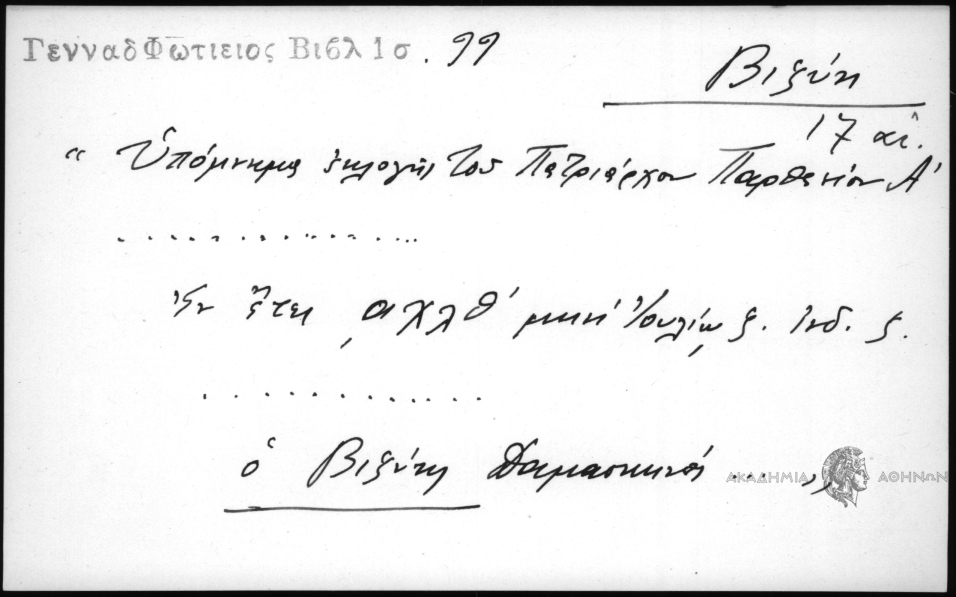 Γενναδ Φωτιειος Βιβλ 1σ . 99
Βιζύη
17 αἰ.
“ Ὑπόμνημα ἐκλογῆς τοῦ Πατριάρχου Παρθενίου Α'
. . . . . . . . . . . . . . . .
Ἐν ἔτει ͵αχλθ' μηνὶ Ἰουλίῳ ζ. Ἰνδ. ζ.
. . . . . . . . . . . . .
ὁ Βιζύης Δαμασκηνός ... ”
ΑΚΑΔΗΜΙΑ ΑΘΗΝΩΝ